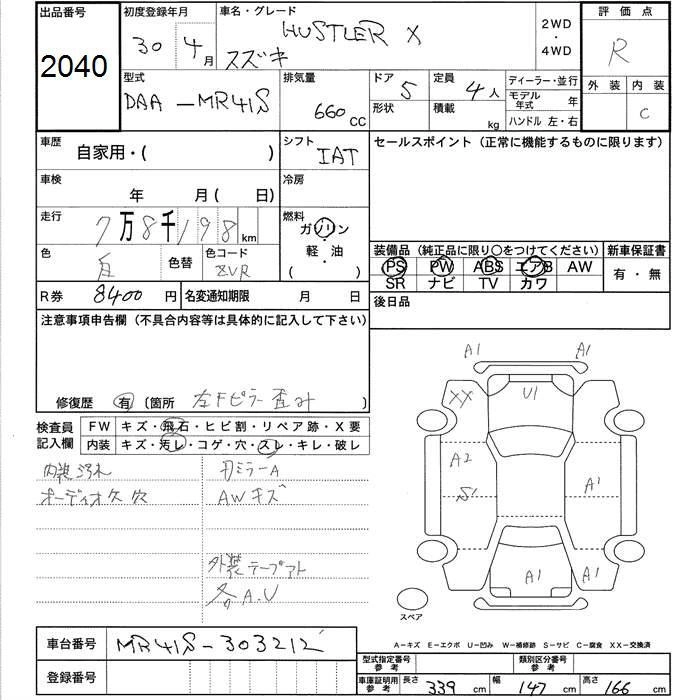 出品番号
2040
初度登録年月
30 4月
車名・グレード
HUSTLER X
スズキ
2WD
・
4WD
評価点
R
型式
DAA-MR41S
排気量
660 CC
ドア 5
形状
定員 4人
積載 kg
ディーラー・並行
モデル年式 年
ハンドル 左・右
外装 内装
C
車歴
自家用・( )
シフト
IAT
セールスポイント (正常に機能するものに限ります)
車検
年 月( 日)
冷房
走行
7万8千198km
燃料
ガソリン
・
軽・油
( )
色
白
色替
色コード
ZVR
装備品 (純正品に限り○をつけてください)
PS PW ABS エアB AW
SR ナビ TV カワ
新車保証書
有・無
R券 8400円
名変通知期限 月 日
後日品
注意事項申告欄 (不具合内容等は具体的に記入して下さい)
修復歴 有 〔箇所 左Fピラー歪み 〕
検査員
記入欄
FW キズ・飛石・ヒビ割・リペア跡・X要
内装 キズ・汚レ・コゲ・穴・スレ・キレ・破レ
内装汚れ
オーディオ欠 穴
ミラーA
AWキズ
外装テープアト
各A.U
A1 A1
XX U1
A2
S1 A1
A1 A1
A1
スペア
A-キズ E-エクボ U-凹み W-補修跡 S-サビ C-腐食 XX-交換済
車台番号 MR41S-303212
登録番号
型式指定番号
参考
類別区分番号
参考
車庫証明用
参考
長さ 339 cm 幅 147 cm 高さ 166 cm